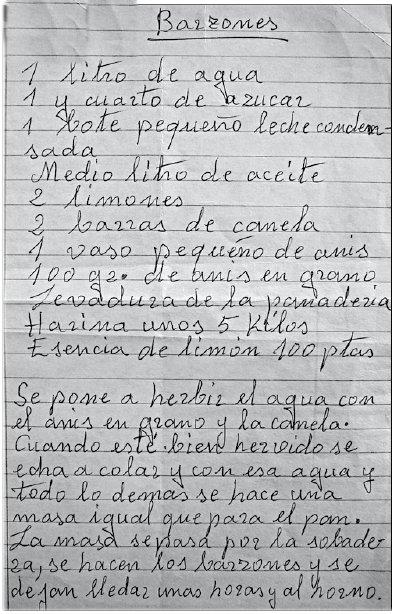 Barzones
1 litro de agua
1 y cuarto de azucar
1 bote pequeño leche condem-
sada
Medio litro de aceite
2 limones
2 barras de camela
1 vaso pequeño de anis
100 gr. de anis en grano
Levadura de la panaderia
Harina unos 5 Kilos
Esencia de limón 100 ptas
Se pone a herbir el agua con
el anis en grano y la camela.
Cuando esté bien hervido se
echa a colar y con esa agua y
todo lo demas se hace una
masa igual que para el pam.
La masa se pasa por la sobade-
ra, se hacen los barzones y se
dejan lledar unas horas y al horno.